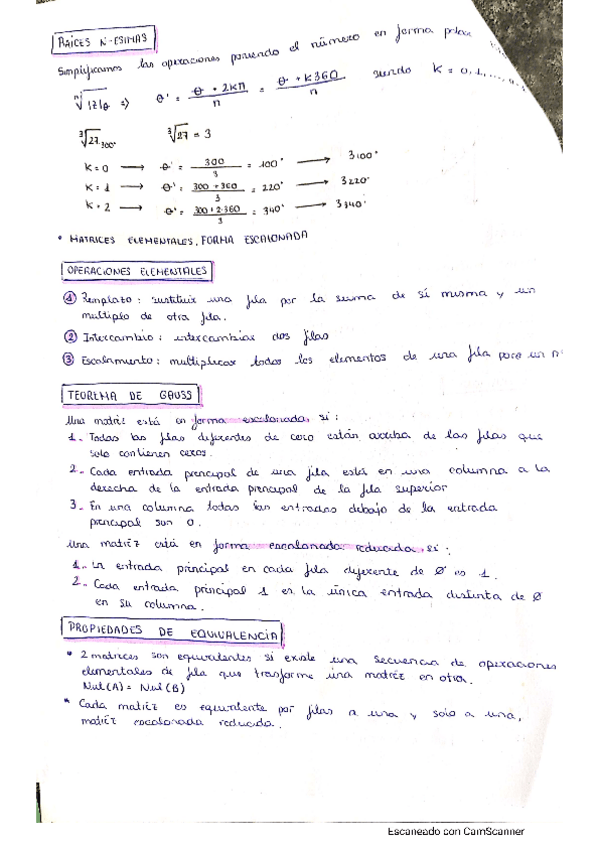 RAICES N-ESIMAS
Simplificamos las operaciones poniendo el número en forma polar
ⁿ√|z|θ => θ' = θ + 2kπ / n = θ + k360 / n siendo k = 0, 1, ...
³√27 300° ³√27 = 3
k = 0 → θ' = 300 / 3 = 100° → 3 100°
k = 1 → θ' = 300 + 360 / 3 = 220° → 3 220°
k = 2 → θ' = 300 + 2·360 / 3 = 340° → 3 340°
• MATRICES ELEMENTALES, FORMA ESCALONADA
OPERACIONES ELEMENTALES
① Remplazo: sustituir una fila por la suma de sí misma y un
multiplo de otra fila.
② Intercambio: intercambiar dos filas
③ Escalamiento: multiplicar todos los elementos de una fila para un
TEOREMA DE GAUSS
Una matriz está en forma escalonada si:
1. Todas las filas diferentes de cero están arriba de las filas que
solo contienen ceros.
2. Cada entrada principal de una fila está en una columna a la
derecha de la entrada principal de la fila superior
3. En una columna todas las entradas debajo de la entrada
principal son 0.
Una matriz está en forma escalonada reducida si:
1. La entrada principal en cada fila diferente de 0 es 1.
2. Cada entrada principal 1 es la única entrada distinta de 0
en su columna.
PROPIEDADES DE EQUIVALENCIA
• 2 matrices son equivalentes si existe una secuencia de operaciones
elementales de fila que trasforme una matriz en otra.
Nul(A) = Nul(B)
• Cada matriz es equivalente por filas a una y solo a una,
matriz escalonada reducida.
Escaneado con CamScanner